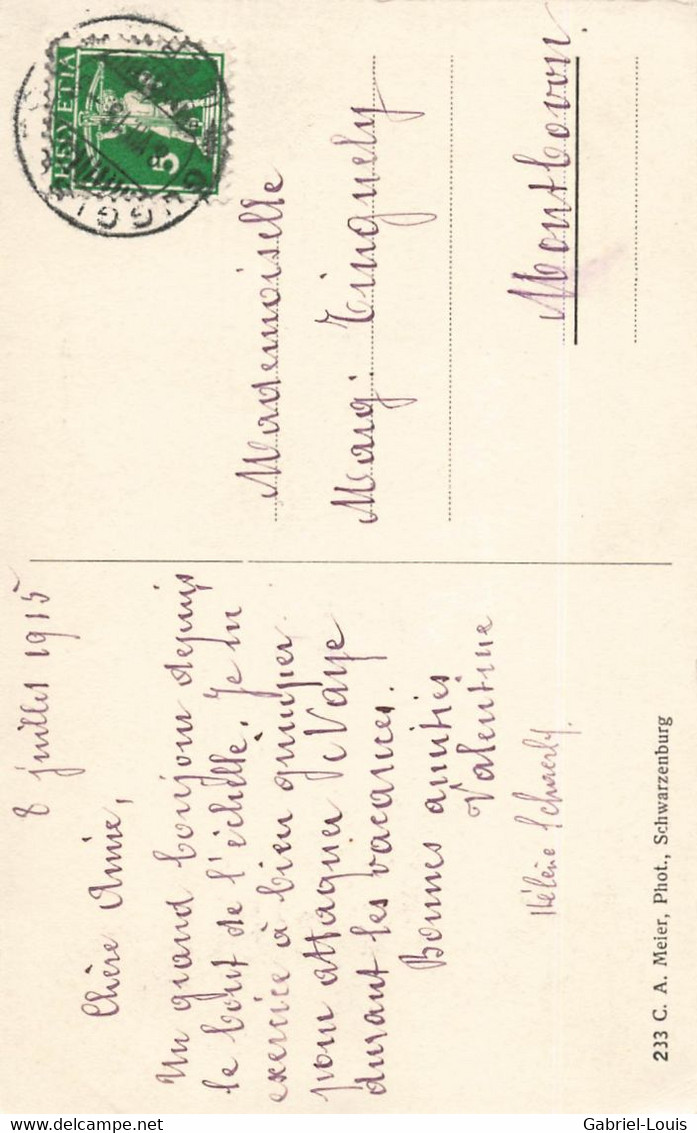 8 juillet 1915
Chère Amie,
Un grand bonjour depuis
le bout de l'échelle. Je m
exercice à bien grimper
pour attaquer Naye
durant les vacances.
Bonnes amitiés
Valentine
Hélène
HELVETIA
5
Mademoiselle
Marg. Tinguely
Montbovon
233 C. A. Meier, Phot., Schwarzenburg
www.delcampe.net
Gabriel-Louis